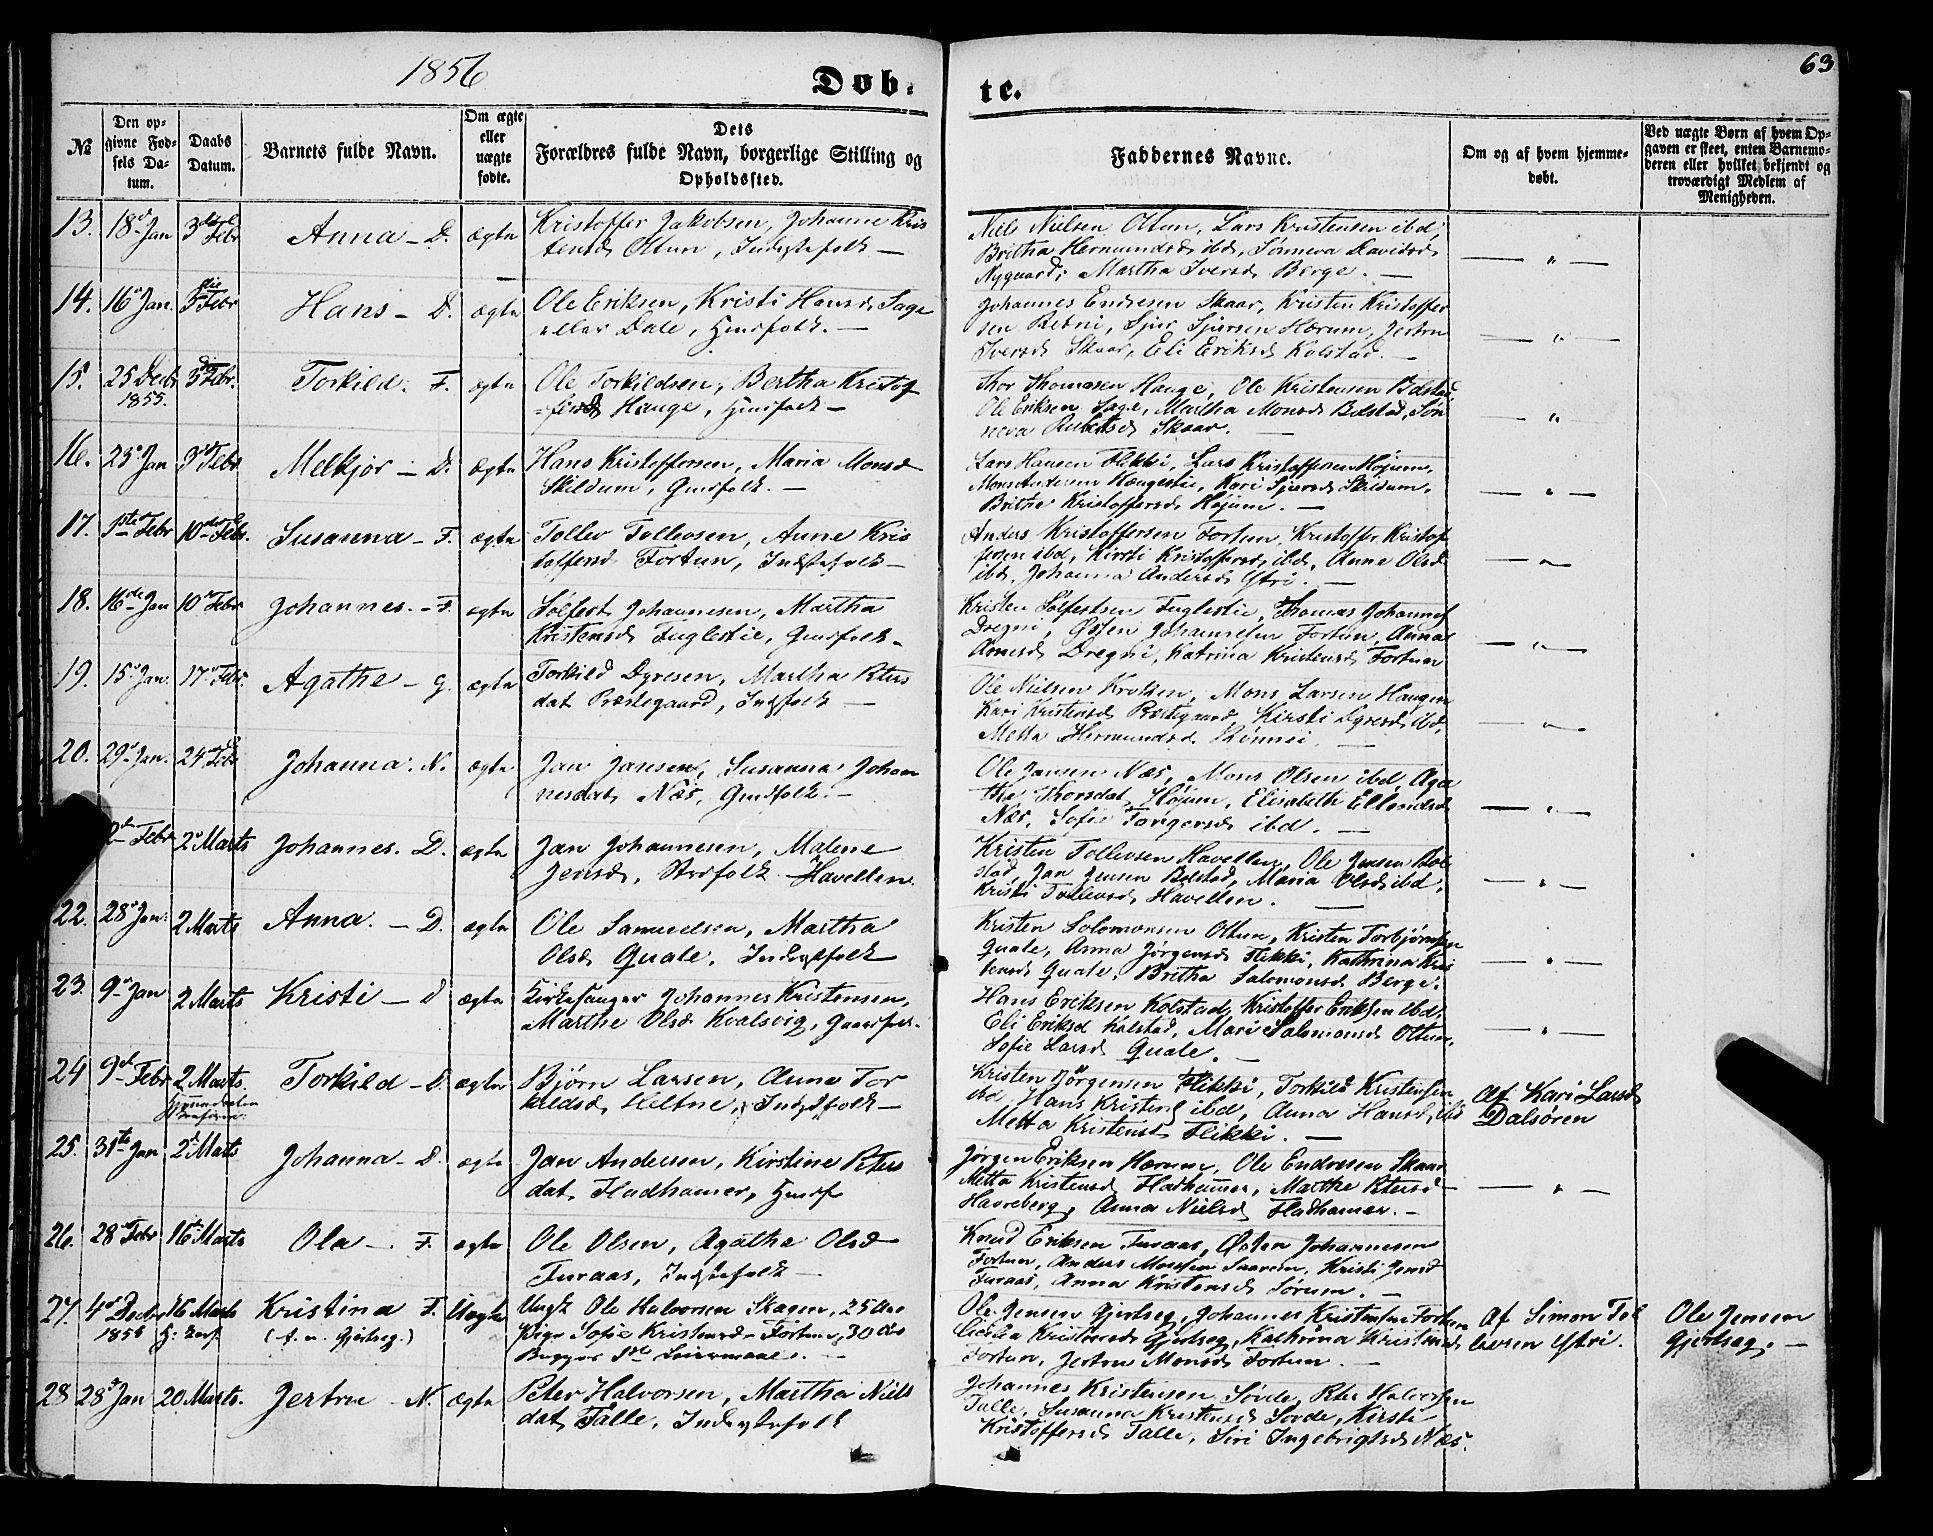 1856
Døb-
te.
63
№
Den op-
givne Fød-
sels Da-
tum.
Daabs
Datum.
Barnets fulde Navn.
Om ægte
eller
uægte
fødte.
Dets
Forældres fulde Navn, borgerlige Stilling og
Opholdssted.
Faddernes Navne.
Om og af hvem hjemme-
døbt.
Ved uægte Børn af hvem Op-
gaven er skeet, enten Barnemo-
deren eller hvilket bekjendt og
troværdigt Medlem af
Menigheden.
13. 18 Jan 3 Febr Anna - D. ægte Kristoffer Jakobsen, Johanne Kris
tensd. Ottum, Indstefolk —
Niels Nielsen Ottum, Lars Kristensen ibd,
Britha Hermundsd ibd, Sønneva Davidsd,
Nygaard, Martha Iversd Berge. —
— " —
14. 16 Jan. 3 Febr Hans - D. ægte Ole Eriksen, Kristi Hansd. Sage
eller Dale, Gmdfolk. —
Johannes Endresen Skaar, Kristen Kristoffer
sen Bebni, Sjur Sjursen Hærum, Jertru
Iversd. Skaar, Eli Eriksd Kolstad. —
— " —
15. 25 Decbr 3 Febr. Torkild. F. ægte Ole Torkildsen, Bertha Kristof
1855.
fersd. Hauge, Gmdfolk —
Thor Thomasen Hauge, Ole Kristensen Bolstad,
Ole Eriksen Sage, Martha Monsd Bolstad, Søn
neva Skaar. —
— " —
16. 23 Jan 3 Febr Melkjor - D. ægte Hans Kristoffersen, Maria Monsd
Skildum, Gmdfolk. —
Lars Hansen Flikki, Lars Kristoffersen Højum,
Mons Andersen Hængestie, Kari Sjursd Skildum,
Brithe Kristoffersd Højum. —
— " —
17. 1ste Febr 10 Febr. Susanna - F. ægte Tollev Tollevsen, Anne Kris
toffersd. Fortun, Indstefolk —
Anders Kristoffersen Fortun, Kristoffer Kristof
fersen ibd, Kirsti Kristoffersd, ibd, Anne Olsd
ibd, Johanna Andersd Ytri. —
— " —
18. 16 Jan 10 Febr Johannes. - F. ægte Solfest Johannesen, Martha
Kristensd Fuglestie, Gmdfolk -
Kristen Solfestsen Fuglestie, Thomas Johannes
Dregni, Østen Johannesen Fortun, Anna
Dregni, Katrina Kristensd Fortun
— " —
19. 15 Jan. 17 Febr. Agathe - G. ægte Torkild Dyresen, Martha Peters
dat. Præstegaard, Indfolk —
Ole Nielsen Kroken, Mons Larsen Haugen
Kari Kristensd Præstegaard, Kirsti Dyresd ibd,
Metta Hermundsd Rønnei. —
— " —
20. 29 Jan. 24 Febr Johanna. N. ægte Jan Jansen, Susanna Johan
nesdat. Næs, Gmdfolk. —
Ole Jansen Næs, Mons Olsen ibd, Aga
tha Thorsdat. Højum, Elisabeth Ellendsd
Næs, Sofie Torgersd ibd. —
— " —
2 Febr 2 Marts Johannes. D. ægte Jan Johannesen, Malene
Jensd., Strdfolk Havellen
Kristen Tollevsen Havellen, Ole Jensen Bol
stad, Jan Jensen Bolstad, Maria Olsd. ibd,
Kristi Tollevsd Havellen. —
— " —
22. 28 Jan. 2 Marts Anna. - D. ægte Ole Samuelsen, Martha
Olsd. Quale, Indstefolk
Kristen Solomonsen Ottum, Kristen Torbjørnsen
Quale, Anna Jørgensd Flikki, Kathrina Kris
tensd Quale, Britha Salomonsd Berge.
— " —
23. 9 Jan 2 Marts Kristi - D ægte Kirkesanger Johannes Kristensen,
Marthe Olsd Kvalsvig, Gaardfolk.
Hans Eriksen Kolstad, Kristoffer Eriksen ibd,
Eli Eriksd Kolstad, Mari Salomonsd Ottum,
Sofie Larsd Quale. —
— " —
24 9 Febr 2 Marts. Torkild - D. ægte Bjørn Larsen, Anna Tor
kildsd. Heltne, Indstfolk —
Kristen Jørgensen Flikki, Torkild Kristensen
ibd, Hans Kristens ibd, Anna Hansd. ibd
Metta Kristensd. Flikki. —
Af Kari Larsd
Dalsøren
25. 31te Jan 2 Marts Johanna - D. ægte Jan Andersen, Kirstine Peters
dat. Fladhamer, Gmdf
Jørgen Eriksen Hærum, Ole Endresen Skaar
Metta Kristensd Fladhamer, Marthe Petersd —
Havreberg, Anna Nielsd. Fladhamer. —
— " —
26. 28 Febr 16 Marts Ola - F. ægte Ole Olsen, Agatha Olsd
Furaas, Indstefolk —
Knud Eriksen Furaas, Østen Johannesen
Fortun, Anders Monsen Saaheim, Kristi Jensd
Furaas, Anna Kristensd Sørum. —
27. 4 Decbr 16 Marts Kristina F. Uægte Ungk Ole Halvorsen Skagen, 25 Aar
1855 (A. n. Gjertseg.) Pige Sofie Kristensd. Fortun, 30 Aar
Begges 1ste Leiermaal. —
Ole Jensen Gjertseg, Johannes Kristensen Fortun
Cicilia Kristensd Gjertseg, Kathrina Kristensd
Fortun, Jertru Monsd Fortun. —
Af Simon Tol
levsen Ytri.
Ole Jensen
Gjertseg. —
28 28 Jan 20 Marts. Jertru - N. ægte Peter Halvorsen, Martha Niels
dat. Talle, Indstefolk
Johannes Kristensen Sørde, Peter Halvorsen
Talle, Susanna Kristensd Sorde, Kirsti
Kristoffersd. Talle, Siri Ingebrigtsd. Næs.